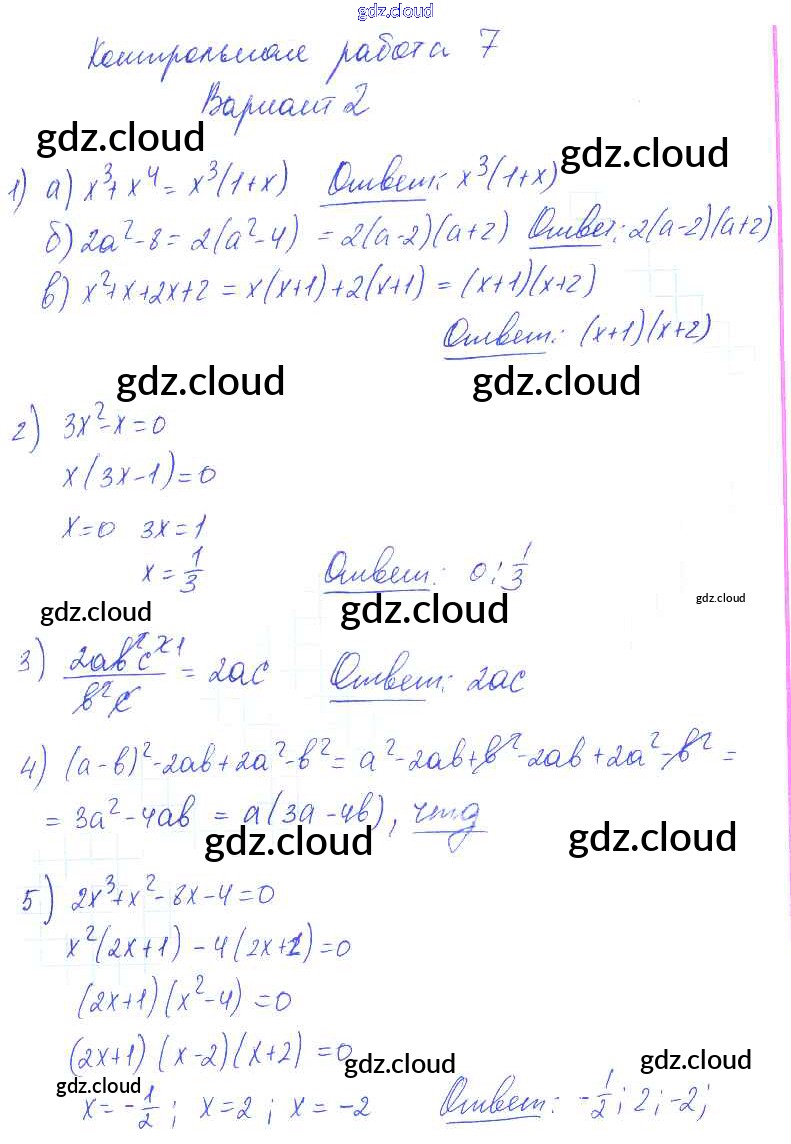 gdz.cloud
Контрольная работа 7
Вариант 2
gdz.cloud gdz.cloud
1) а) x³+x⁴ = x³(1+x) Ответ: x³(1+x)
б) 2a²-8 = 2(a²-4) = 2(a-2)(a+2) Ответ: 2(a-2)(a+2)
в) x²+x+2x+2 = x(x+1)+2(x+1) = (x+1)(x+2)
Ответ: (x+1)(x+2)
gdz.cloud gdz.cloud
2) 3x²-x=0
x(3x-1)=0
x=0 3x=1
x=1/3 Ответ: 0; 1/3
gdz.cloud gdz.cloud gdz.cloud
3) 2ab²c²/b²c = 2ac Ответ: 2ac
4) (a-b)²-2ab+2a²-b² = a²-2ab+b²-2ab+2a²-b² =
= 3a²-4ab = a(3a-4b), чтд
gdz.cloud gdz.cloud
5) 2x³+x²-8x-4=0
x²(2x+1)-4(2x+1)=0
(2x+1)(x²-4)=0
(2x+1)(x-2)(x+2)=0
gdz.cloud gdz.cloud gdz.cloud
x=-1/2; x=2; x=-2 Ответ: -1/2; 2; -2;